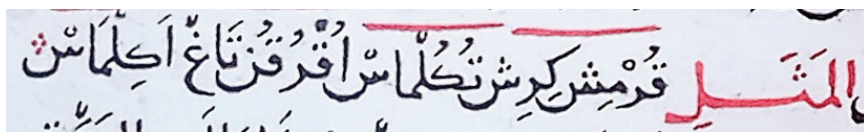 المَثَلِ قُرْمِش كِرِش تُكُلْمَاسْ اُقْرُقُن تَاغْ اَكِلْمَاسْ